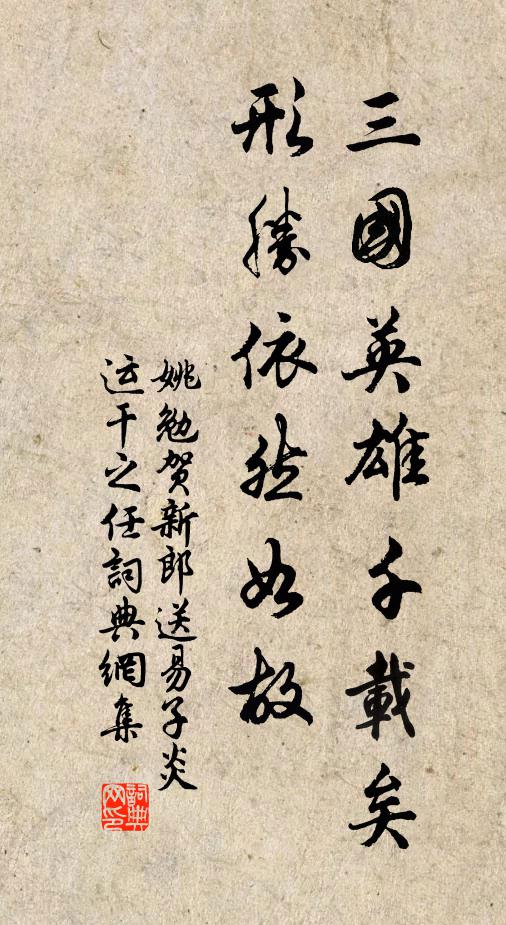 三國英雄千載矣
形勝依然如故
姚勉賀新郎送易子炎
运干之任詞典網集
詞典网印